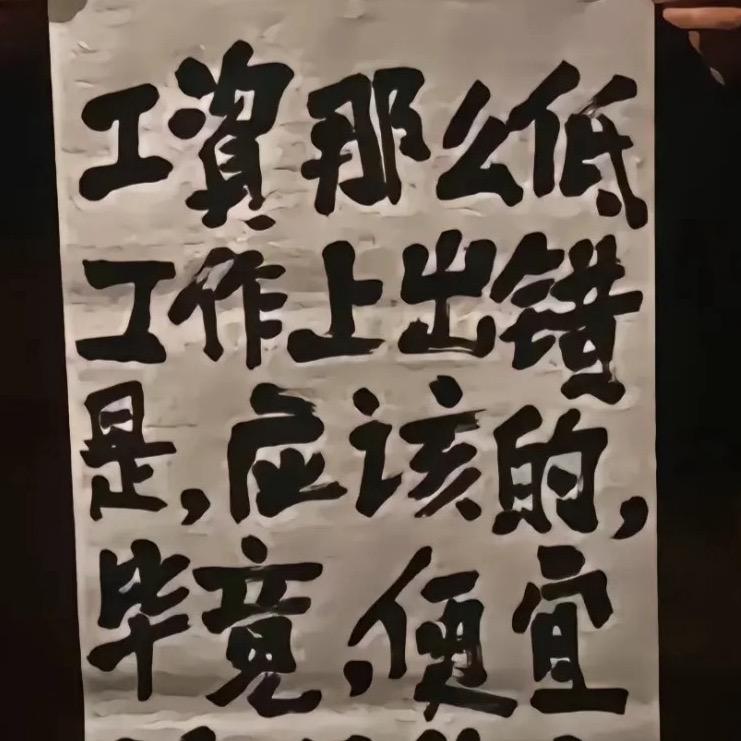 工資那么低
工作上出错
是,应该的,
毕竟,便宜